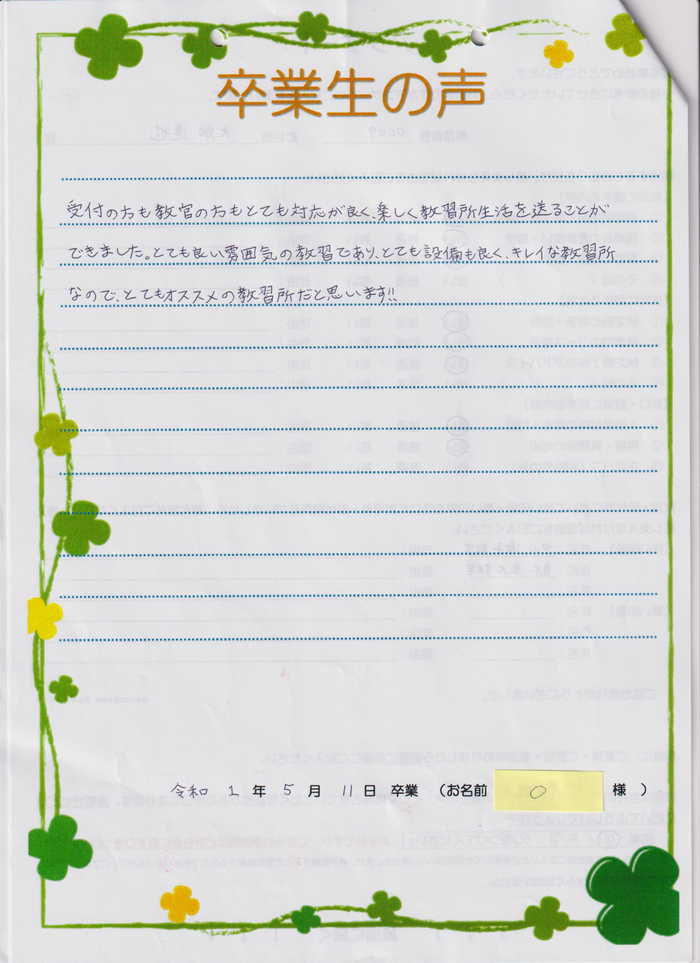 卒業生の声
受付の方も教官の方もとても対応が良く、楽しく教習所生活を送ることが
できました。とても良い雰囲気の教習であり、とても設備も良く、キレイな教習所
なので、とてもオススメの教習所だと思います!!
令和 1 年 5 月 11 日 卒業 (お名前 〇 様 )